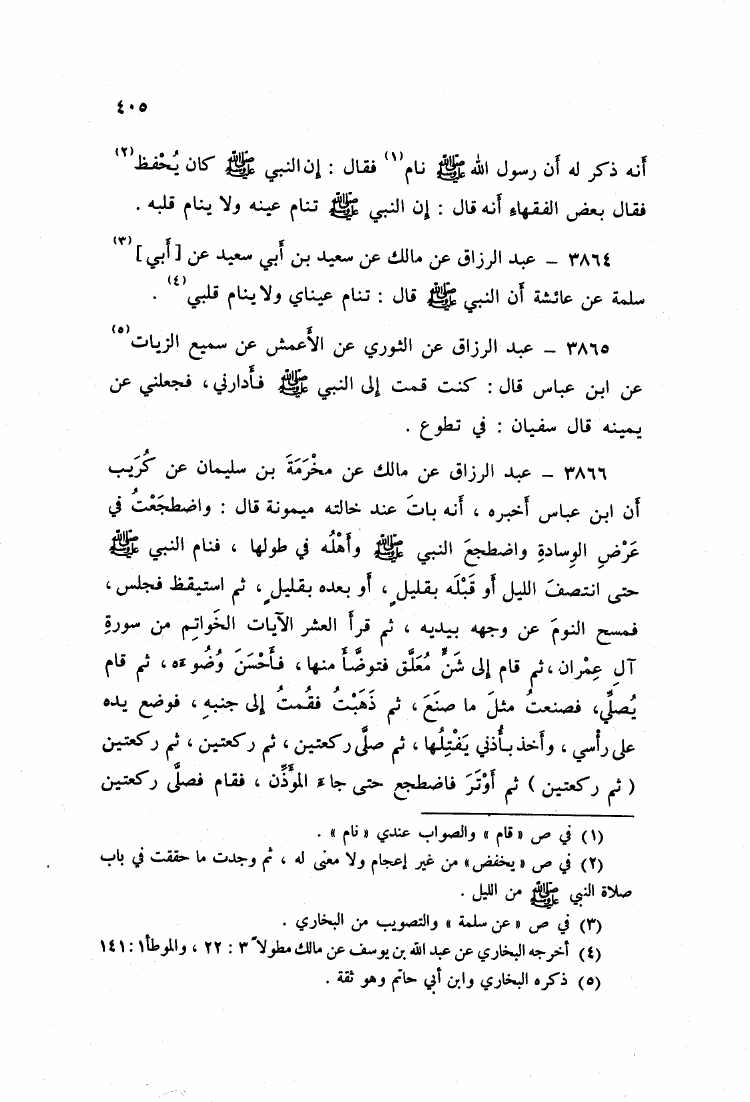 ٤٠٥
أنه ذكر له أن رسول الله ﷺ نام(١) فقال : إن النبي ﷺ كان يُحْفظ(٢)
فقال بعض الفقهاء أنه قال : إن النبي ﷺ تنام عينه ولا ينام قلبه .
٣٨٦٤ – عبد الرزاق عن مالك عن سعيد بن أبي سعيد عن [أبي](٣)
سلمة عن عائشة أن النبي ﷺ قال : تنام عيناي ولا ينام قلبي(٤) .
٣٨٦٥ – عبد الرزاق عن الثوري عن الأعمش عن سميع الزيات(٥)
عن ابن عباس قال : كنت قمت إلى النبي ﷺ فأدارني ، فجعلني عن
يمينه قال سفيان : في تطوع .
٣٨٦٦ – عبد الرزاق عن مالك عن مخْرَمَةَ بن سليمان عن كُرَيب
أن ابن عباس أخبره ، أنه باتَ عند خالته ميمونة قال : واضطجَعْتُ في
عَرْضِ الوِسادةِ واضطجعَ النبي ﷺ وأَهْلُه في طولها ، فنام النبي ﷺ
حتى انتصفَ الليل أو قَبْلَه بقليلٍ ، أو بعده بقليلٍ ، ثم استيقظ فجلس ،
فمسح النومَ عن وجهه بيديه ، ثم قرأَ العشر الآيات الخَواتِم من سورةِ
آلِ عِمْران ، ثم قام إلى شَنٍّ مُعَلَّق فتوضَّأَ منها ، فأَحْسَنَ وُضُوءَه ، ثم قام
يُصلِّي ، فصنعتُ مثلَ ما صنَعَ ، ثم ذَهَبْتُ فقُمتُ إلى جنبهِ ، فوضع يده
على رأسي ، وأخذ بأُذني يَفْتِلُها ، ثم صلَّى ركعتين ، ثم ركعتين ، ثم ركعتين
( ثم ركعتين ) ثم أَوْتَرَ فاضطجع حتى جاءَ المؤَذِّن ، فقام فصلَّى ركعتين
(١) في ص « قام » والصواب عندي « نام » .
(٢) في ص « يخفض » من غير إعجام ولا معنى له ، ثم وجدت ما حققت في باب
صلاة النبي ﷺ من الليل .
(٣) في ص « عن سلمة » والتصويب من البخاري .
(٤) أخرجه البخاري عن عبد الله بن يوسف عن مالك مطولاً ٣ : ٢٢ ، والموطأ ١ : ١٤١
(٥) ذكره البخاري وابن أبي حاتم وهو ثقة .